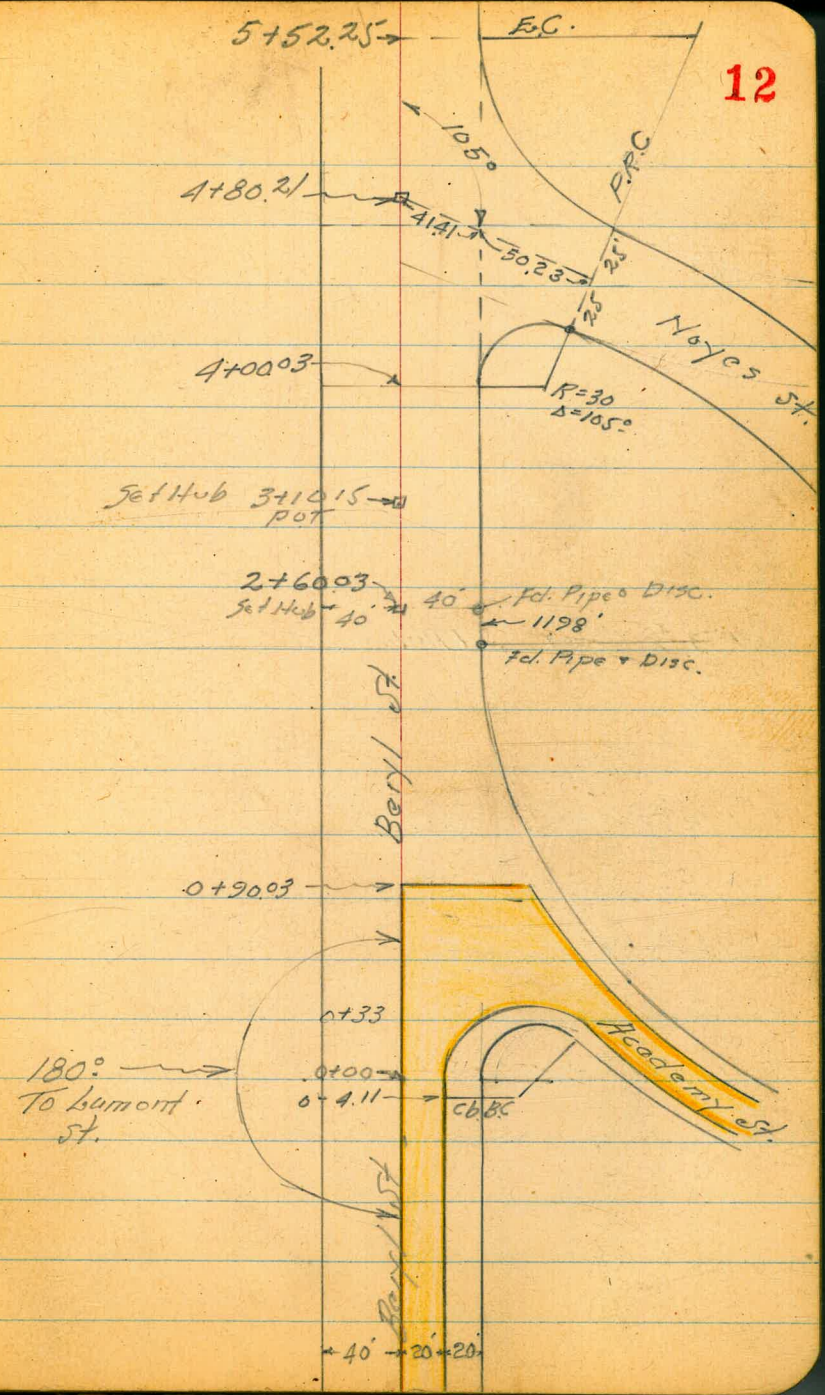 5+52.25
E.C.
12
105°
P.R.C
4+80.21
41.41
50.23
25'
25
Noyes St.
4+00.03
R=30
Δ=105°
Set Hub 3+10.15
POT
2+60.03
Set Hub 40'
40'
Fd. Pipe & Disc.
11.98'
Fd. Pipe & Disc.
Beryl St.
0+90.03
0+33
Academy St.
180°
To Lamont
St.
0+00
0-4.11
Cb.B.C
Beryl St
40' 20' 20'